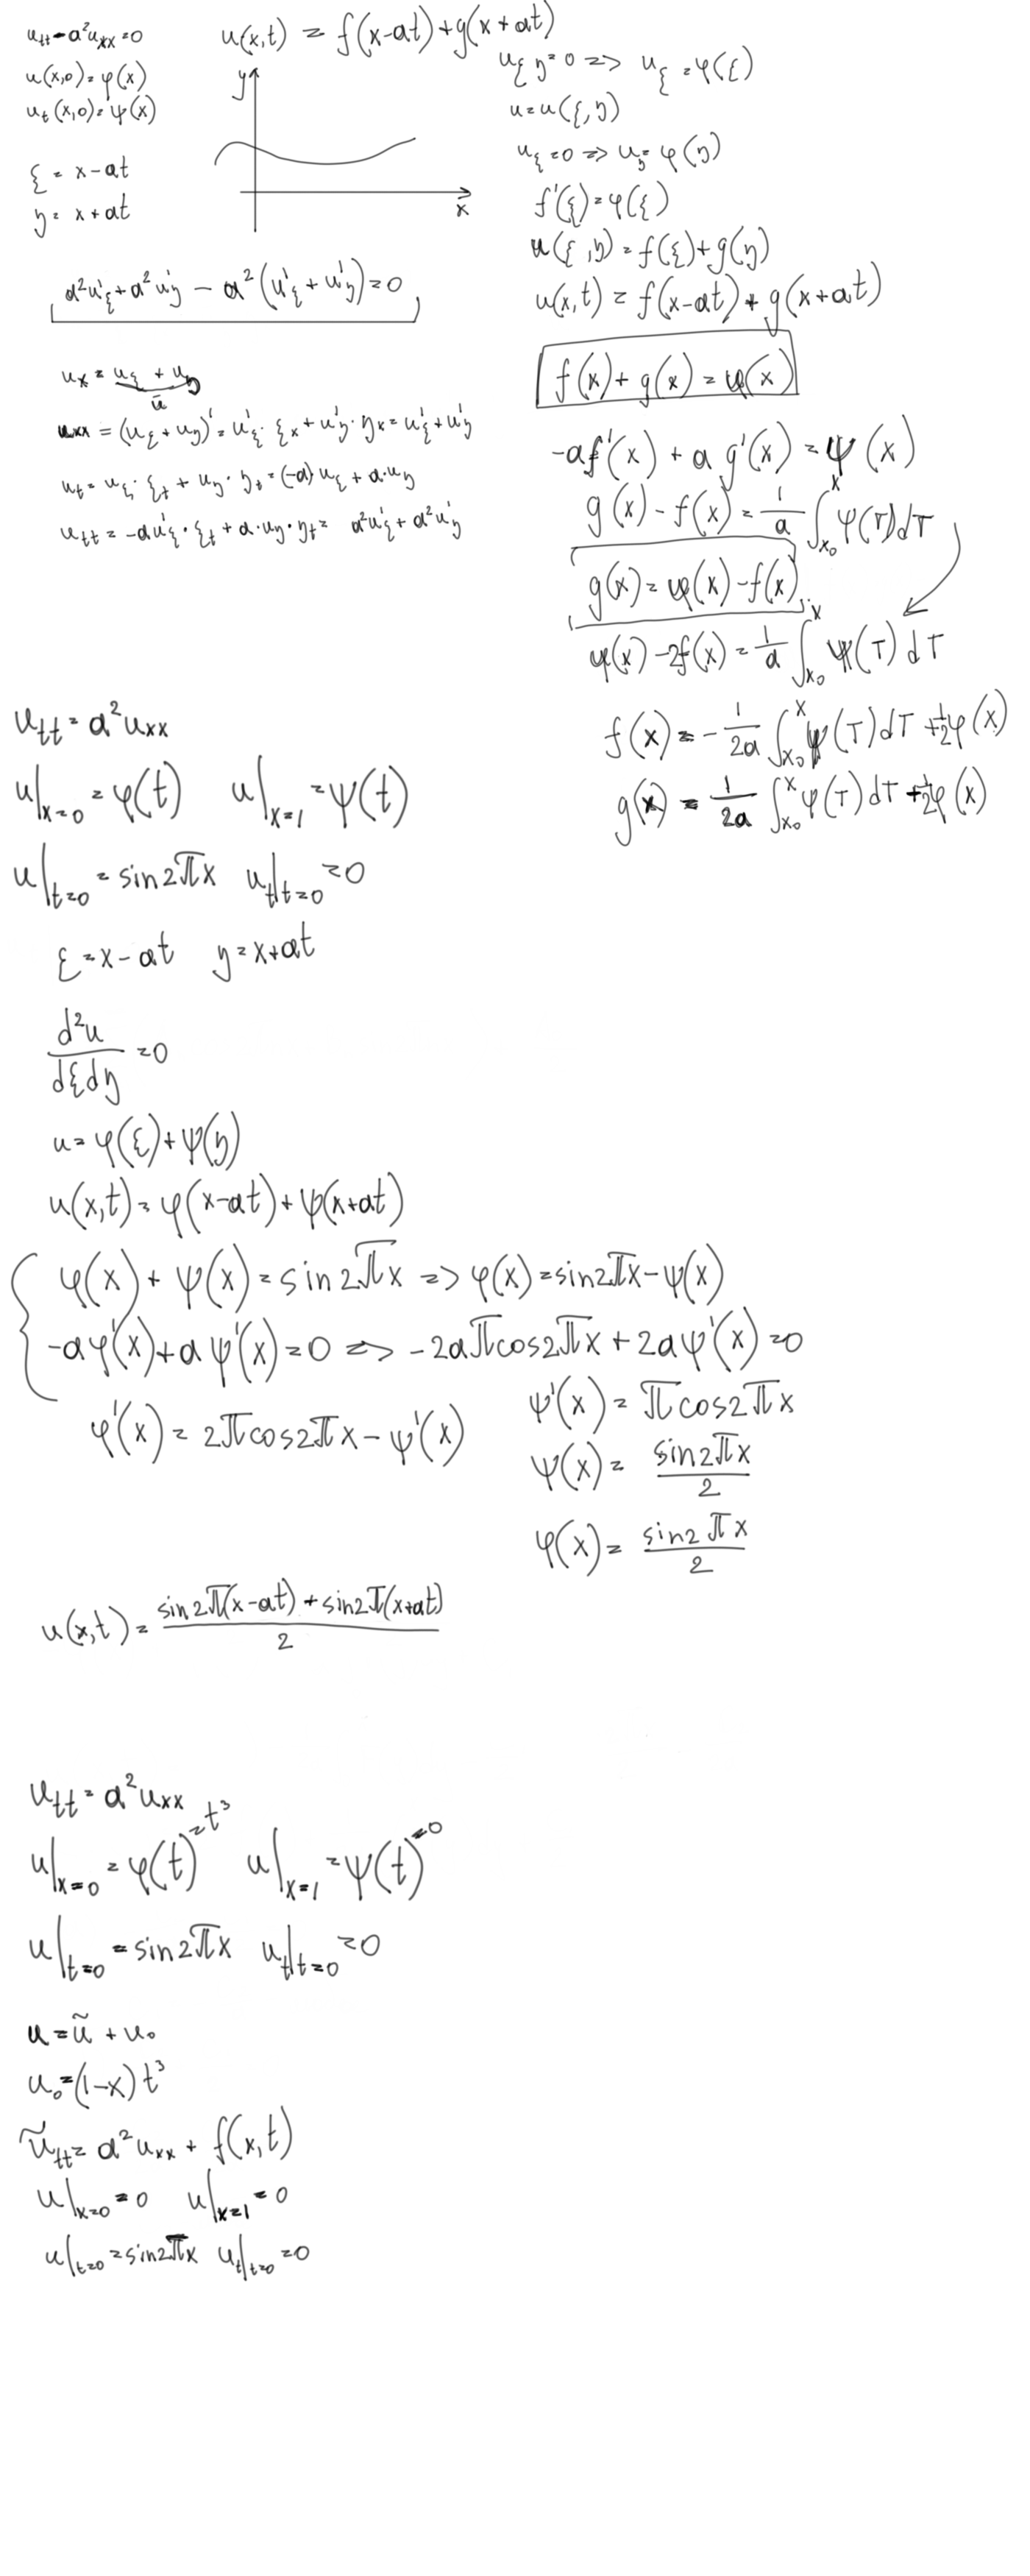 u_tt - a²u_xx = 0
u(x,0) = φ(x)
u_t(x,0) = ψ(x)
ξ = x - at
η = x + at
u(x,t) = f(x-at) + g(x+at)
y
x
a²u'_ξ + a²u'_η - a²(u'_ξ + u'_η) = 0
u_x = u_ξ + u_η
ū
u_xx = (u_ξ + u_η)' = u'_ξ · ξ_x + u'_η · η_x = u'_ξ + u'_η
u_t = u_ξ · ξ_t + u_η · η_t = (-a) u_ξ + a · u_η
u_tt = -a u'_ξ · ξ_t + a · u_η · η_t = a²u'_ξ + a²u'_η
u_ξη = 0 => u_ξ = φ(ξ)
u = u(ξ, η)
u_ξ = 0 => u_η = φ(η)
f'(ξ) = φ(ξ)
u(ξ, η) = f(ξ) + g(η)
u(x,t) = f(x-at) + g(x+at)
f(x) + g(x) = φ(x)
-af'(x) + a g'(x) = ψ(x)
g(x) - f(x) = 1/a ∫_{x₀}^{x} ψ(τ)dτ
g(x) = φ(x) - f(x)
φ(x) - 2f(x) = 1/a ∫_{x₀}^{x} ψ(τ)dτ
f(x) = -1/2a ∫_{x₀}^{x} ψ(τ)dτ + 1/2 φ(x)
g(x) = 1/2a ∫_{x₀}^{x} ψ(τ)dτ + 1/2 φ(x)
u_tt = a²u_xx
u|_{x=0} = φ(t) u|_{x=1} = ψ(t)
u|_{t=0} = sin2πx u_t|_{t=0} = 0
ξ = x - at η = x + at
d²u/dξdη = 0
u = φ(ξ) + ψ(η)
u(x,t) = φ(x-at) + ψ(x+at)
φ(x) + ψ(x) = sin2πx => φ(x) = sin2πx - ψ(x)
-aφ'(x) + aψ'(x) = 0 => -2aπcos2πx + 2aψ'(x) = 0
φ'(x) = 2πcos2πx - ψ'(x)
ψ'(x) = πcos2πx
ψ(x) = sin2πx/2
φ(x) = sin2πx/2
u(x,t) = sin2π(x-at) + sin2π(x+at)/2
u_tt = a²u_xx
u|_{x=0} = φ(t) = t³ u|_{x=1} = ψ(t) = 0
u|_{t=0} = sin2πx u_t|_{t=0} = 0
u = ũ + u₀
u₀ = (1-x) t³
ũ_tt = a²u_xx + f(x,t)
u|_{x=0} = 0 u|_{x=1} = 0
u|_{t=0} = sin2πx u_t|_{t=0} = 0